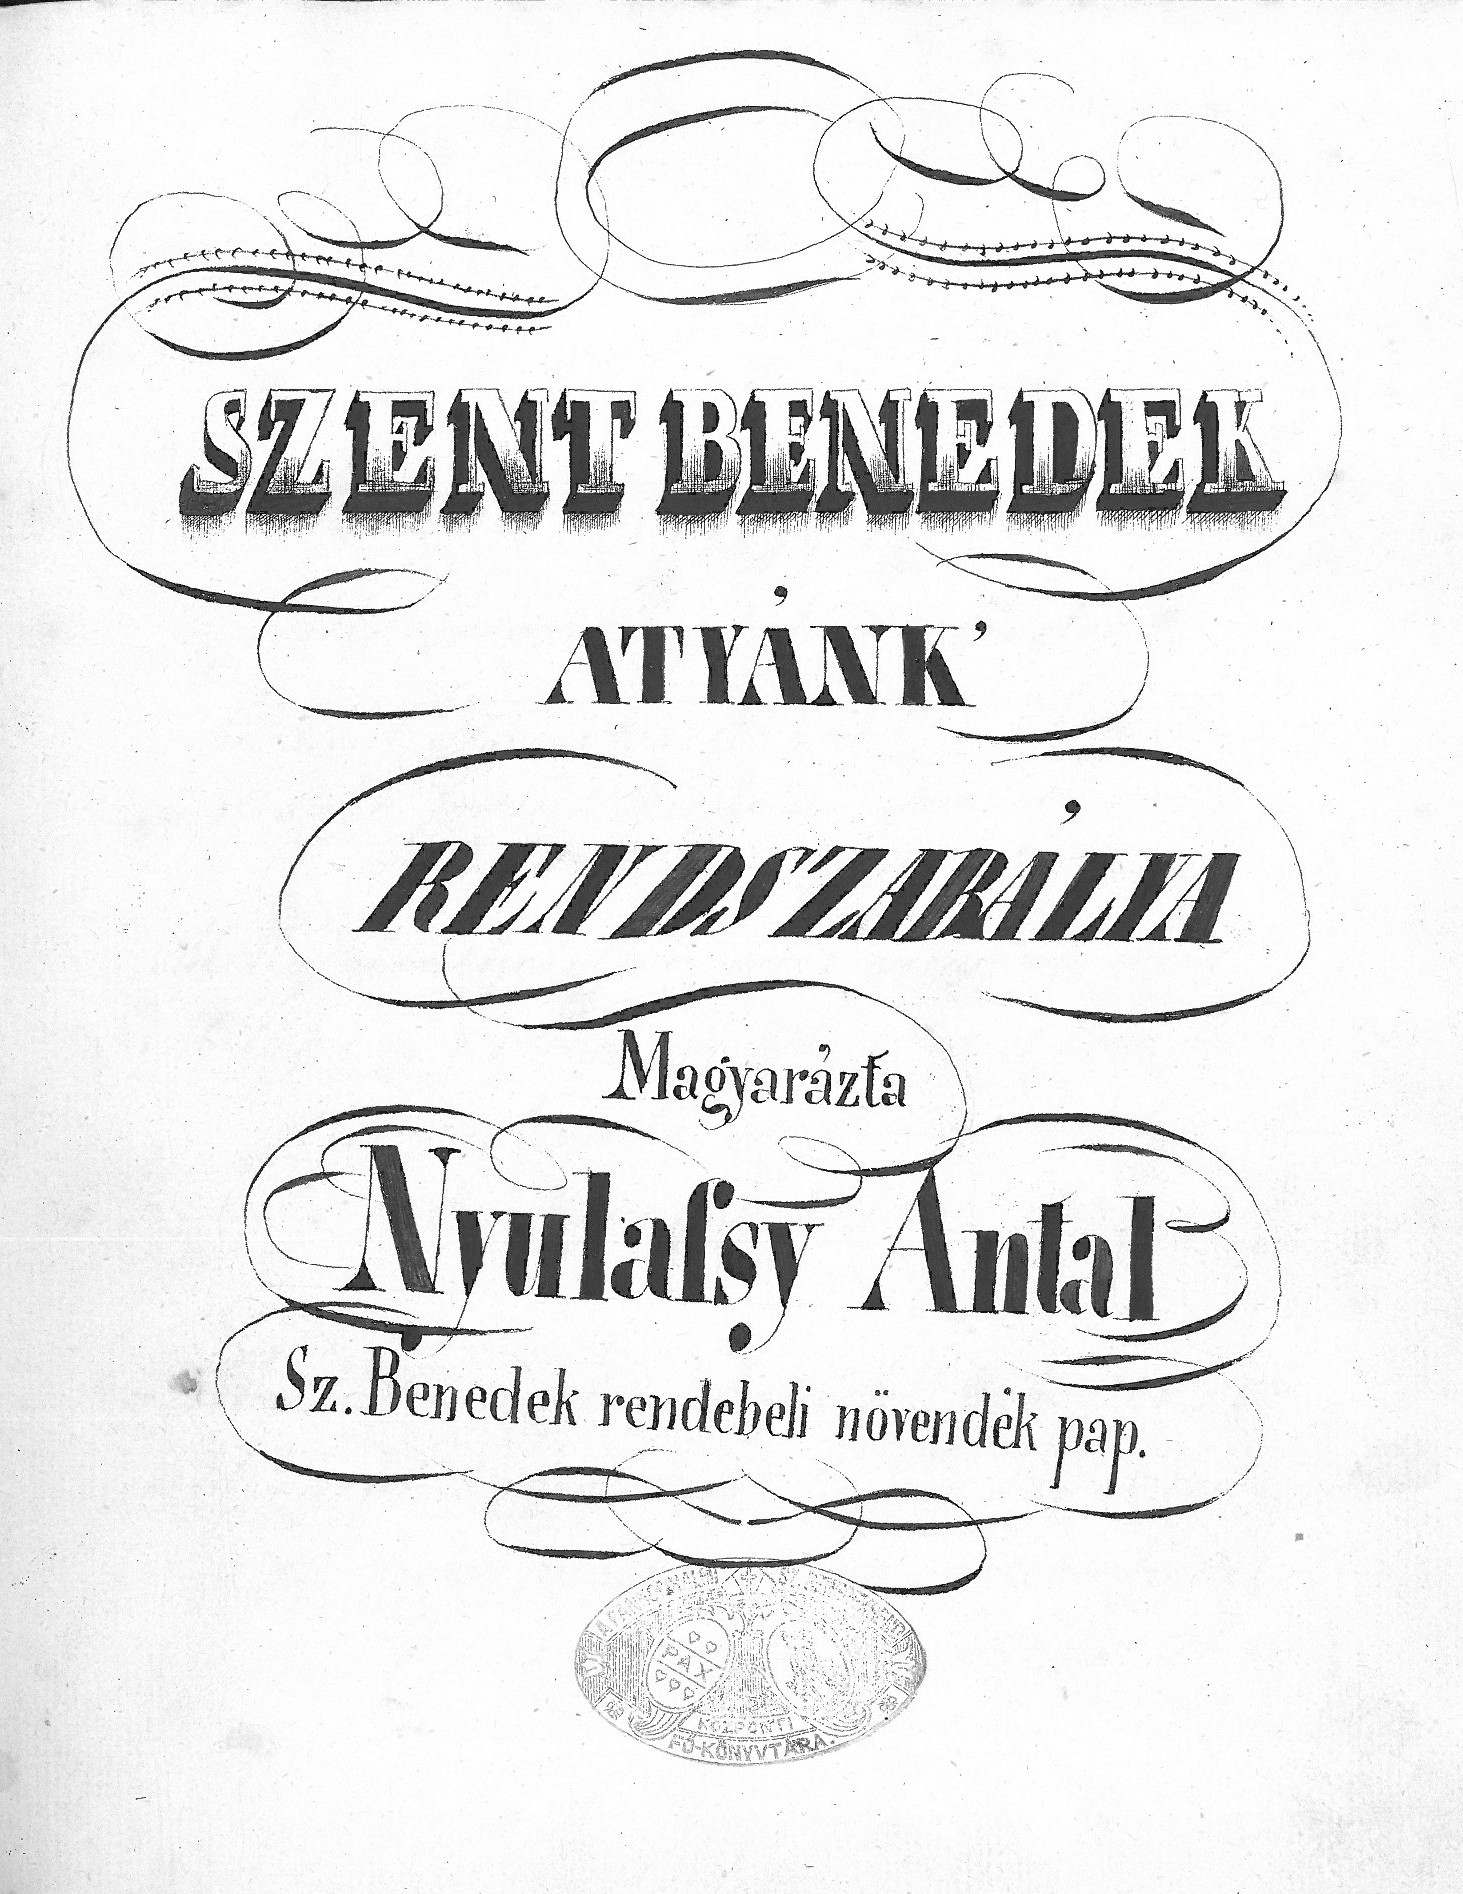 SZENT BENEDEK
ATYÁNK'
RENDSZABÁLYA
Magyarázta
Nyulaſsy Antal
Sz. Benedek rendebeli növendék pap.
PAX
KÖZPONTI
FŐ-KÖNYVTÁRA.